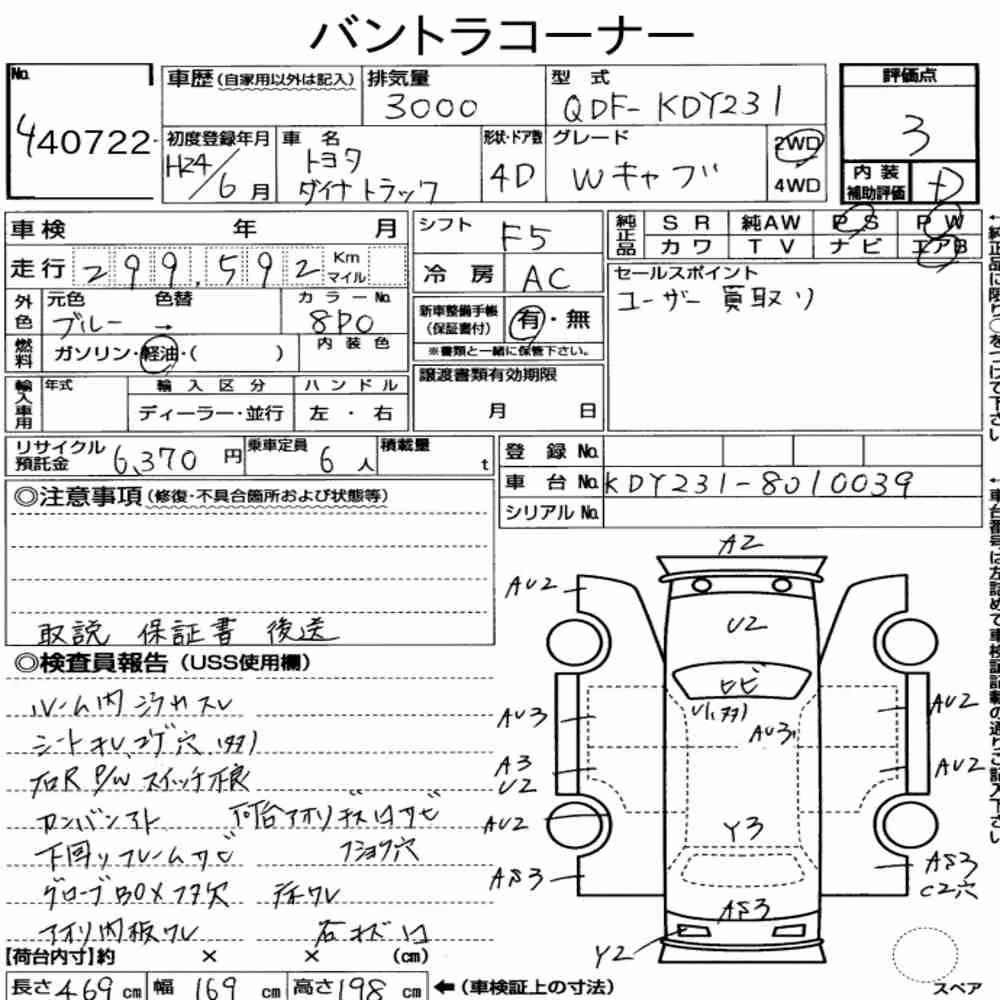 バントラコーナー
No.
440722-
車歴(自家用以外は記入)
排気量
3000
型式
QDF-KDY231
評価点
3
初度登録年月
H24/6月
車名
トヨタ
ダイナトラック
形状・ドア数
4D
グレード
Wキャブ
2WD
4WD
内装
補助評価
D
車検 年 月
シフト
F5
純正品
SR 純AW PS PW
カワ TV ナビ エアB
走行 299,592 Km
マイル
冷房
AC
セールスポイント
ユーザー買取り
外色
元色 色替
ブルー →
カラーNo.
8P0
新車整備手帳
(保証書付)
有・無
※書類と一緒に保管下さい。
燃料
ガソリン・軽油・( )
内装色
輸入車用
年式
輸入区分
ディーラー・並行
ハンドル
左・右
譲渡書類有効期限
月 日
リサイクル
預託金
6,370円
乗車定員
6人
積載量
t
登録No.
車台No.
KDY231-8010039
シリアルNo.
◎注意事項(修復・不具合箇所および状態等)
取説 保証書 後送
◎検査員報告(USS使用欄)
ルーム内
シートキレ コゲ穴
右R P/W スイッチ不良
荷台アオリキズ凹サビ
下回りフレームサビ
グローブBOXフタ欠
アオリ内板ワレ
A2
AU2
U2
ヒビ
AU3
AU3
AU2
A3
U2
AU2
AU2
Y3
AS3
AS3
C2穴
AS3
Y2
スペア
【荷台内寸】約 × × (cm)
長さ469cm 幅169cm 高さ198cm ←(車検証上の寸法)